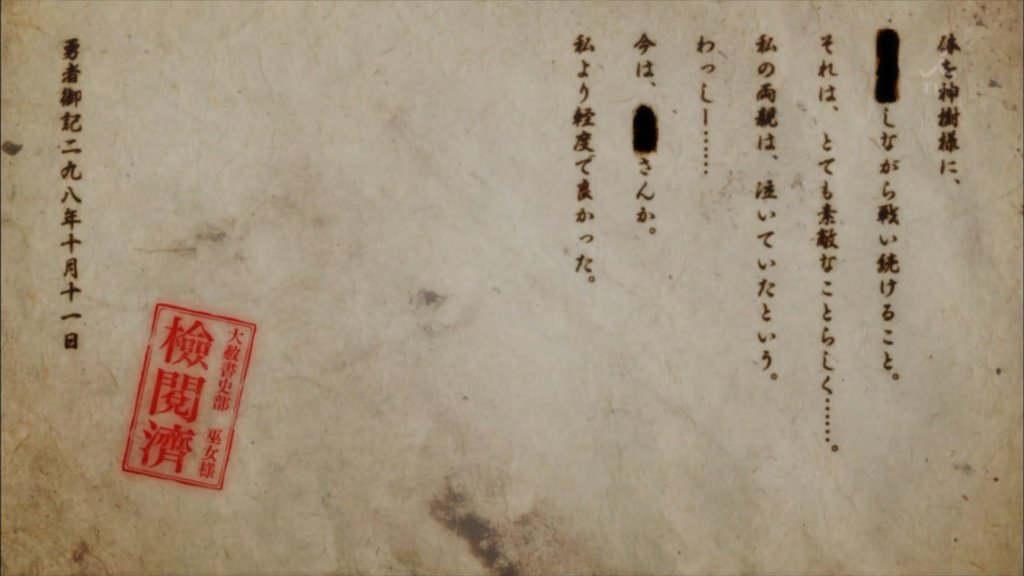 体を神樹様に、
しながら戦い続けること。
それは、とても素敵なことらしく……。
私の両親は、泣いていたという。
わっしー……
今は、 さんか。
私より軽度で良かった。
勇者御記二九八年十月十一日
大赦書史部 巫女様
檢閲濟